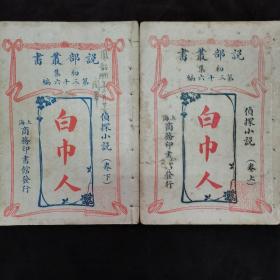 說部叢書
初集
第三十六編
偵探小說
(卷下)
白巾人
上海商務印書館發行
說部叢書
初集
第三十六編
偵探小說
(卷上)
白巾人
上海商務印書館發行